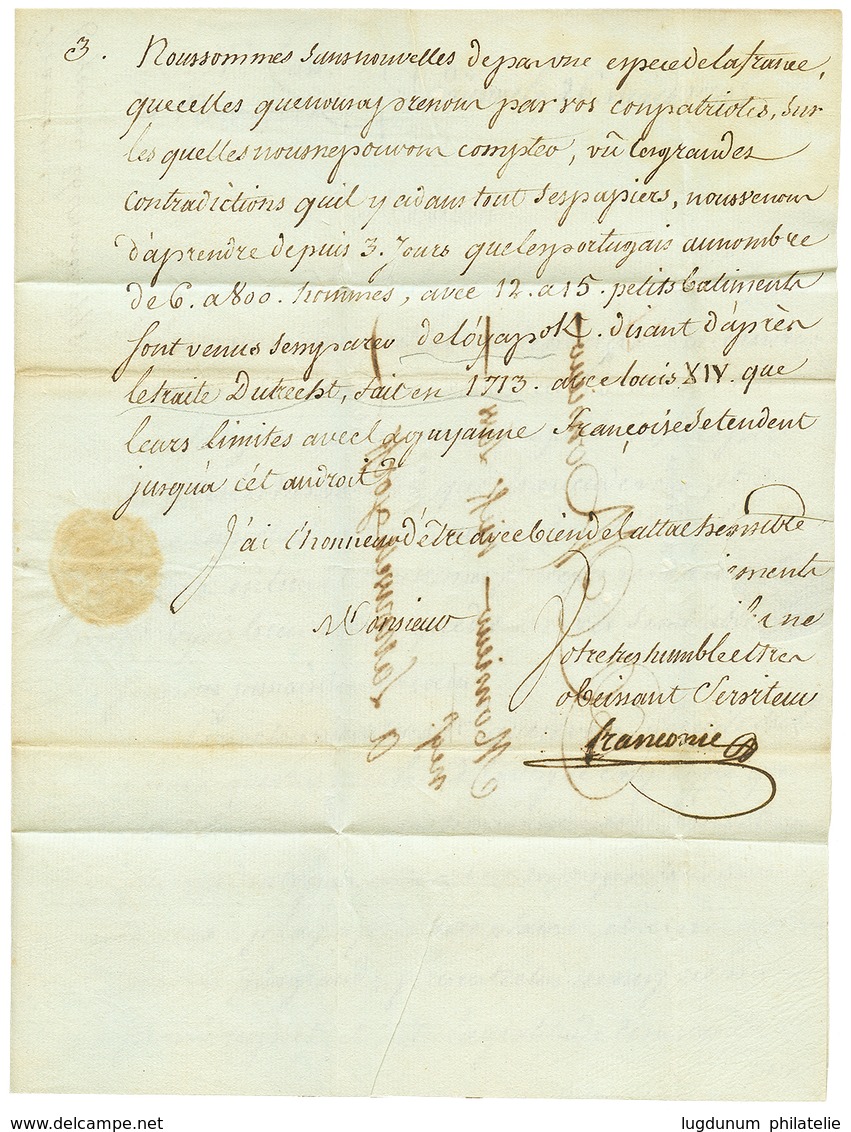 3. Nous sommes sans nouvelles de pas une espece de la france,
que celles que nous aprenons par vos conpatriotes, sur
les quelles nous ne pouvons compter, vû les grandes
contradictions qu'il y a dans tout ses papiers, nous venons
d'aprendre depuis 3. Jours que les portugais au nombre
de 6. a 800. hommes, avec 12. a 15. petits batiments
sont venus s'emparer de l'óyapok. disant d'aprèn
le traité Dutrecht, fait en 1713. avec louis XIV. que
leurs limites avec la guyanne françoise s'etendent
jusqu'a cét androit.
J'ai l'honneur d'être avec bien de l'attachement
Monsieur
Votre tres humble et tres
obeissant Serviteur
franconie
delcampe.net
lugdunum philatelie